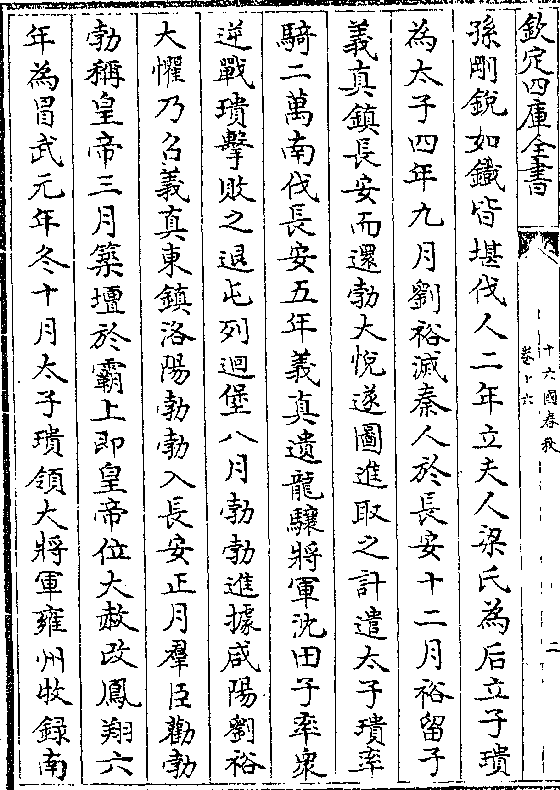 欽定四庫全書
十六國春秋
卷十六
二
孫剛銳如鐵皆堪伐人二年立夫人梁氏為后立子璝
為太子四年九月劉裕滅秦人於長安十二月裕留子
義真鎮長安而還勃大悅遂圖進取之計遣太子璝率
騎二萬南伐長安五年義真遣龍驤將軍沈田子率衆
逆戰璝擊敗之退屯列迴堡八月勃勃進據咸陽劉裕
大懼乃召義真東鎮洛陽勃勃入長安正月羣臣勸勃
勃稱皇帝三月築壇於霸上即皇帝位大赦改鳳翔六
年為冒武元年冬十月太子璝領大將軍雍州牧録南